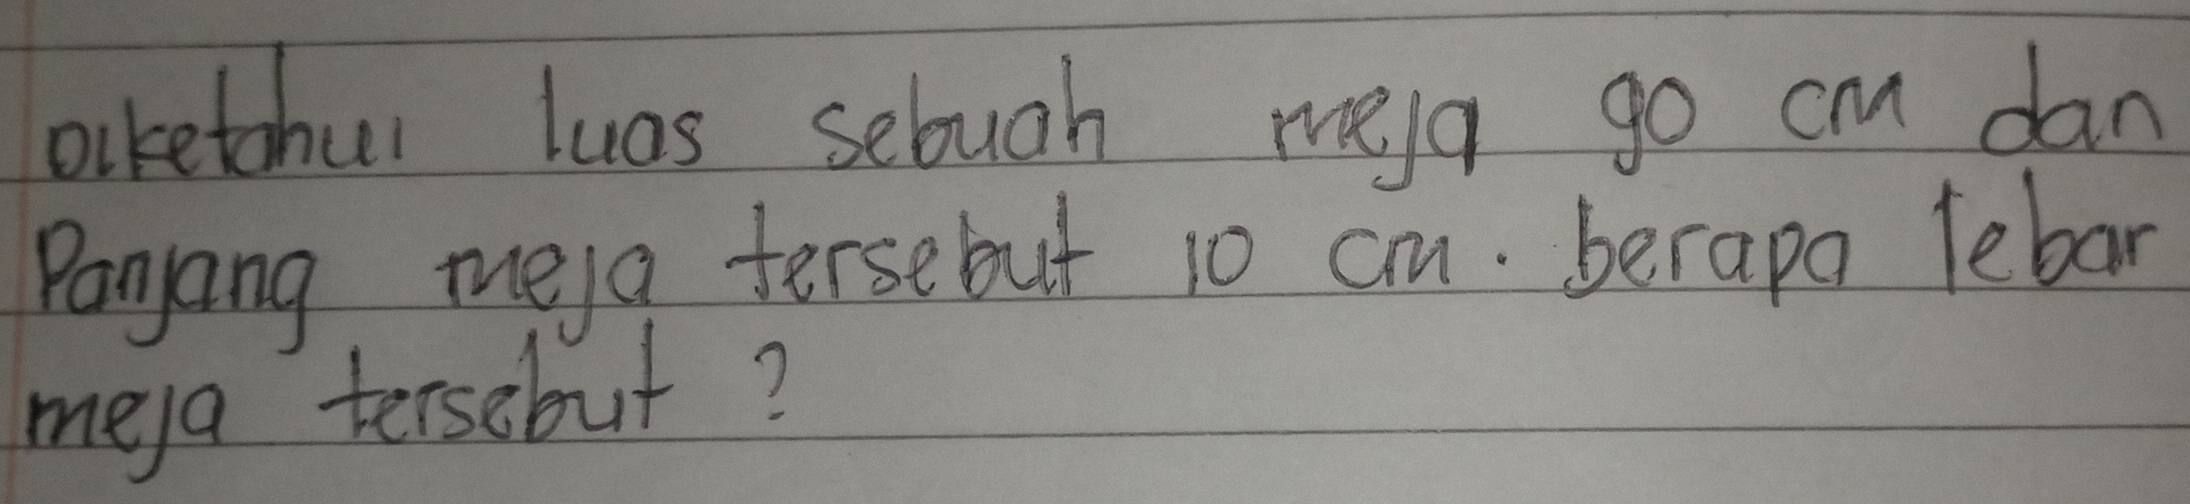 Diketahui luas sebuah meja 90 cm dan
Panjang meja tersebut 10 cm. berapa lebar
meja tersebut?